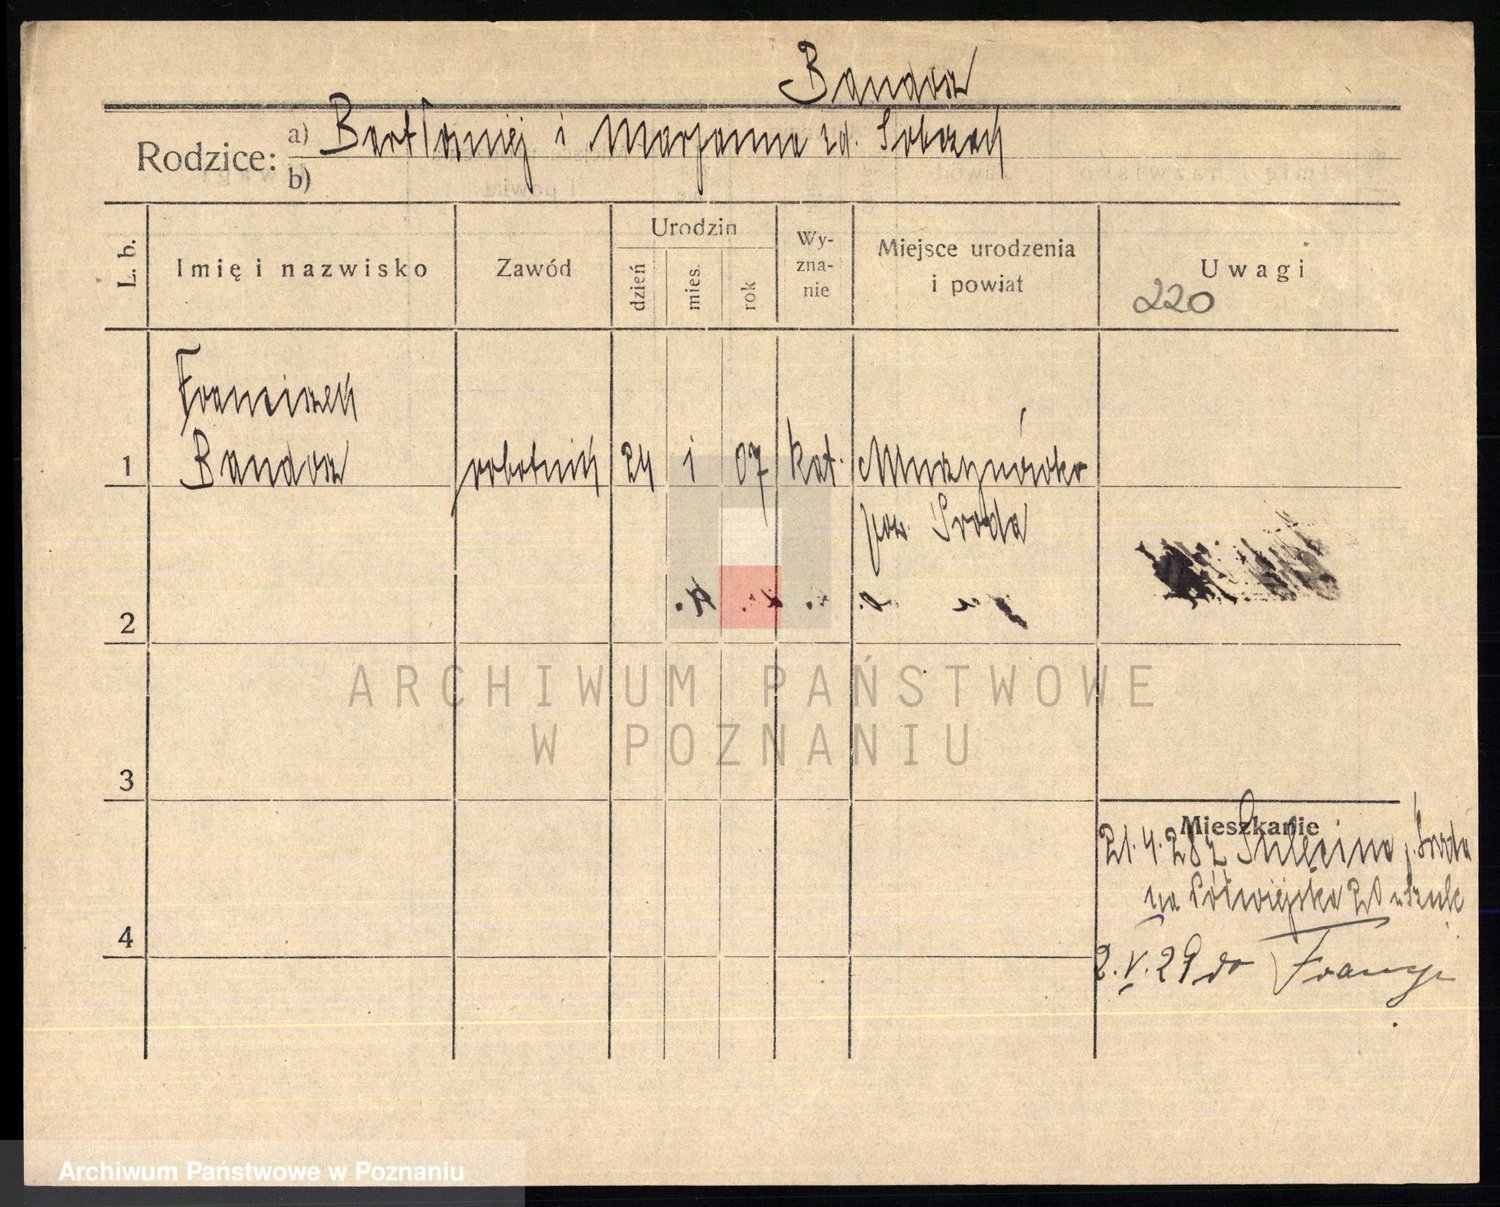 Bandosz
Rodzice: a) Bartłomiej i Marjanna zd. Sobczak
b)
L. b.
Imię i nazwisko
Zawód
Urodzin
dzień
mies.
rok
Wy-
zna-
nie
Miejsce urodzenia
i powiat
Uwagi
220
Franciszek
1 Bandosz robotnik 24 i 07 kat. Murzynówko
pow. Środa
2
ARCHIWUM PAŃSTWOWE
W POZNANIU
3
Mieszkanie
21.4.28 z Sulęcina p. Środa
na Półwiejska 20
4
2.V.29 do Francji
Archiwum Państwowe w Poznaniu